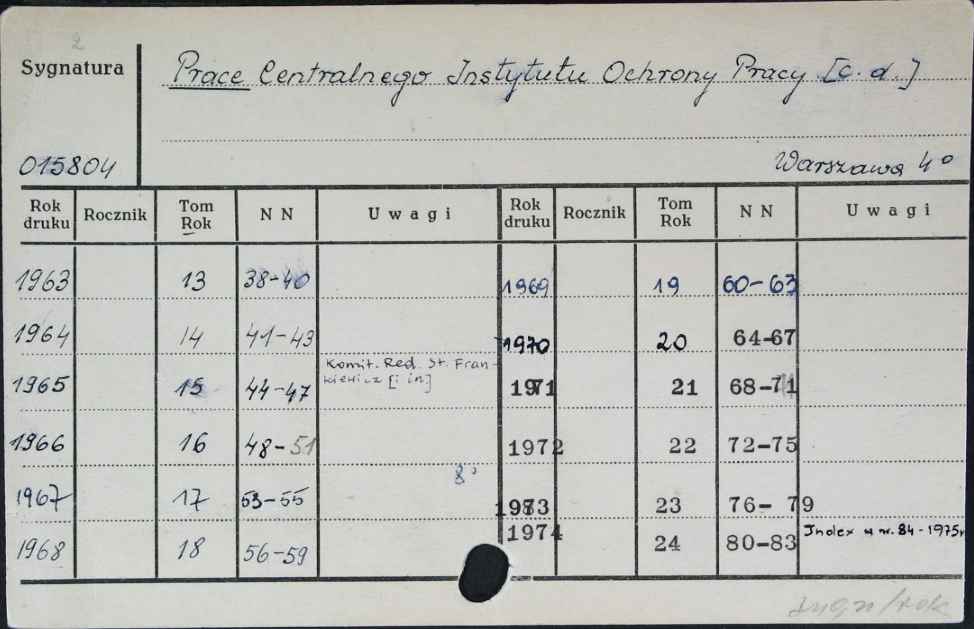 2
Sygnatura
Prace Centralnego Instytutu Ochrony Pracy [c. d.]
015804
Warszawa 4°
Rok druku Rocznik Tom Rok NN Uwagi Rok druku Rocznik Tom Rok NN Uwagi
1963 13 38-40 1969 19 60-63
1964 14 41-43 1970 20 64-67
1965 15 44-47 Komit. Red. St. Fran-
kiewicz [i in] 1971 21 68-71
1966 16 48-51 1972 22 72-75
8°
1967 17 53-55 1973 23 76-79
1968 18 56-59 1974 24 80-83 Index w nr. 84-1975r